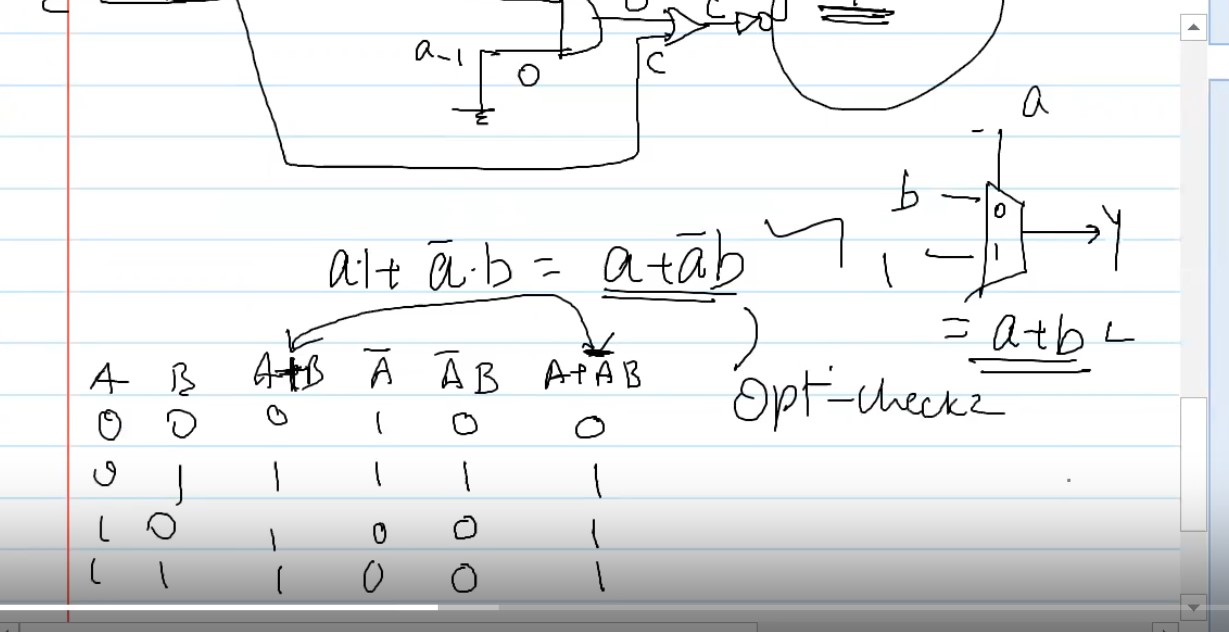 a-1
0
C
C
a
b
0
Y
1
1
a.1 + ā.b = a+āb
= a+b
Opt-check2
A B A+B Ā ĀB A+ĀB
0 0 0 1 0 0
0 1 1 1 1 1
1 0 1 0 0 1
1 1 1 0 0 1